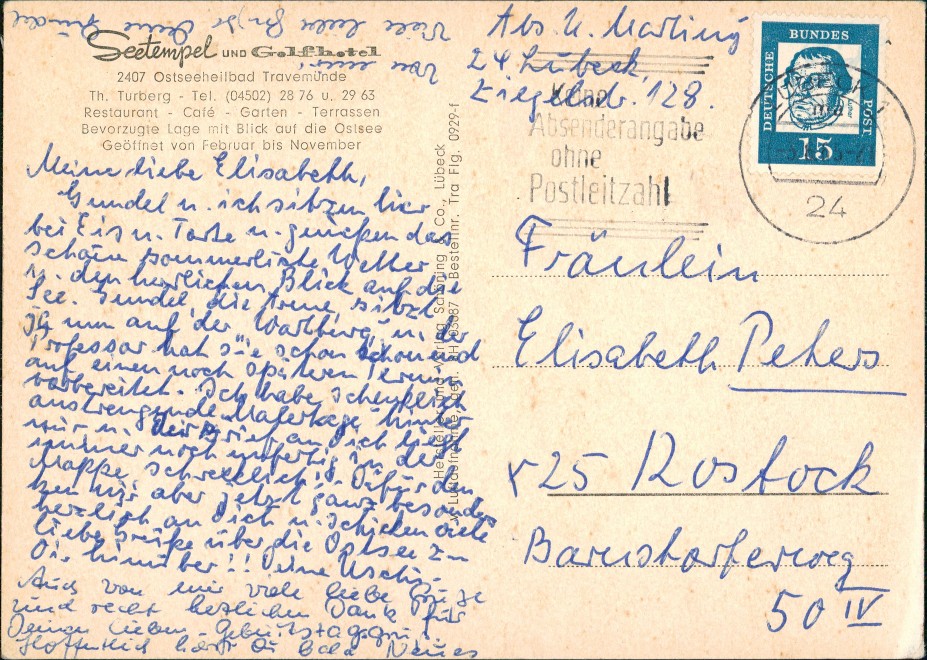 Seetempel UND Golfhotel
2407 Ostseeheilbad Travemünde
Th. Turberg - Tel. (04502) 28 76 u. 29 63
Restaurant - Café - Garten - Terrassen
Bevorzugte Lage mit Blick auf die Ostsee
Geöffnet von Februar bis November
Meine liebe Elisabeth,
Gundel u. ich sitzen hier
bei Eis u. Torte u. genießen das
schöne sommerliche Wetter
u. den herrlichen Blick auf die
See. Gundel, die Arme, sitzt
nun auf der Wartburg, u. der
Professor hat sie schon schonend
auf einen noch späteren Termin
vorbereitet. Ich habe scheußlich
anstrengende Malertage hinter
mir u. der Brief an Dich liegt
immer noch unfertig in der
Mappe, schrecklich! Dafür den-
ken wir aber jetzt ganz besonders
herzlich an Dich u. schicken viele
liebe Grüße über die Ostsee zu
Dir hinüber!! Deine Uschi.
Auch von mir viele liebe Grüße
und recht herzlichen Dank für
Deinen lieben Geburtstagsgruß!
Hoffentlich hörst Du bald Neues
von mir!
Viele liebe Grüße Deine Gundel
Hersteller und Verlag Schöning & Co., Lübeck
Bestellnr. Tra Flg. 0929-f
Abs. U. Marting
24 Lübeck,
Ziegelstr. 128.
Keine
Absenderangabe
ohne
Postleitzahl
DEUTSCHE BUNDES POST
15
24
Fräulein
Elisabeth Peters
x25 Rostock
Barnstorferweg
50 IV